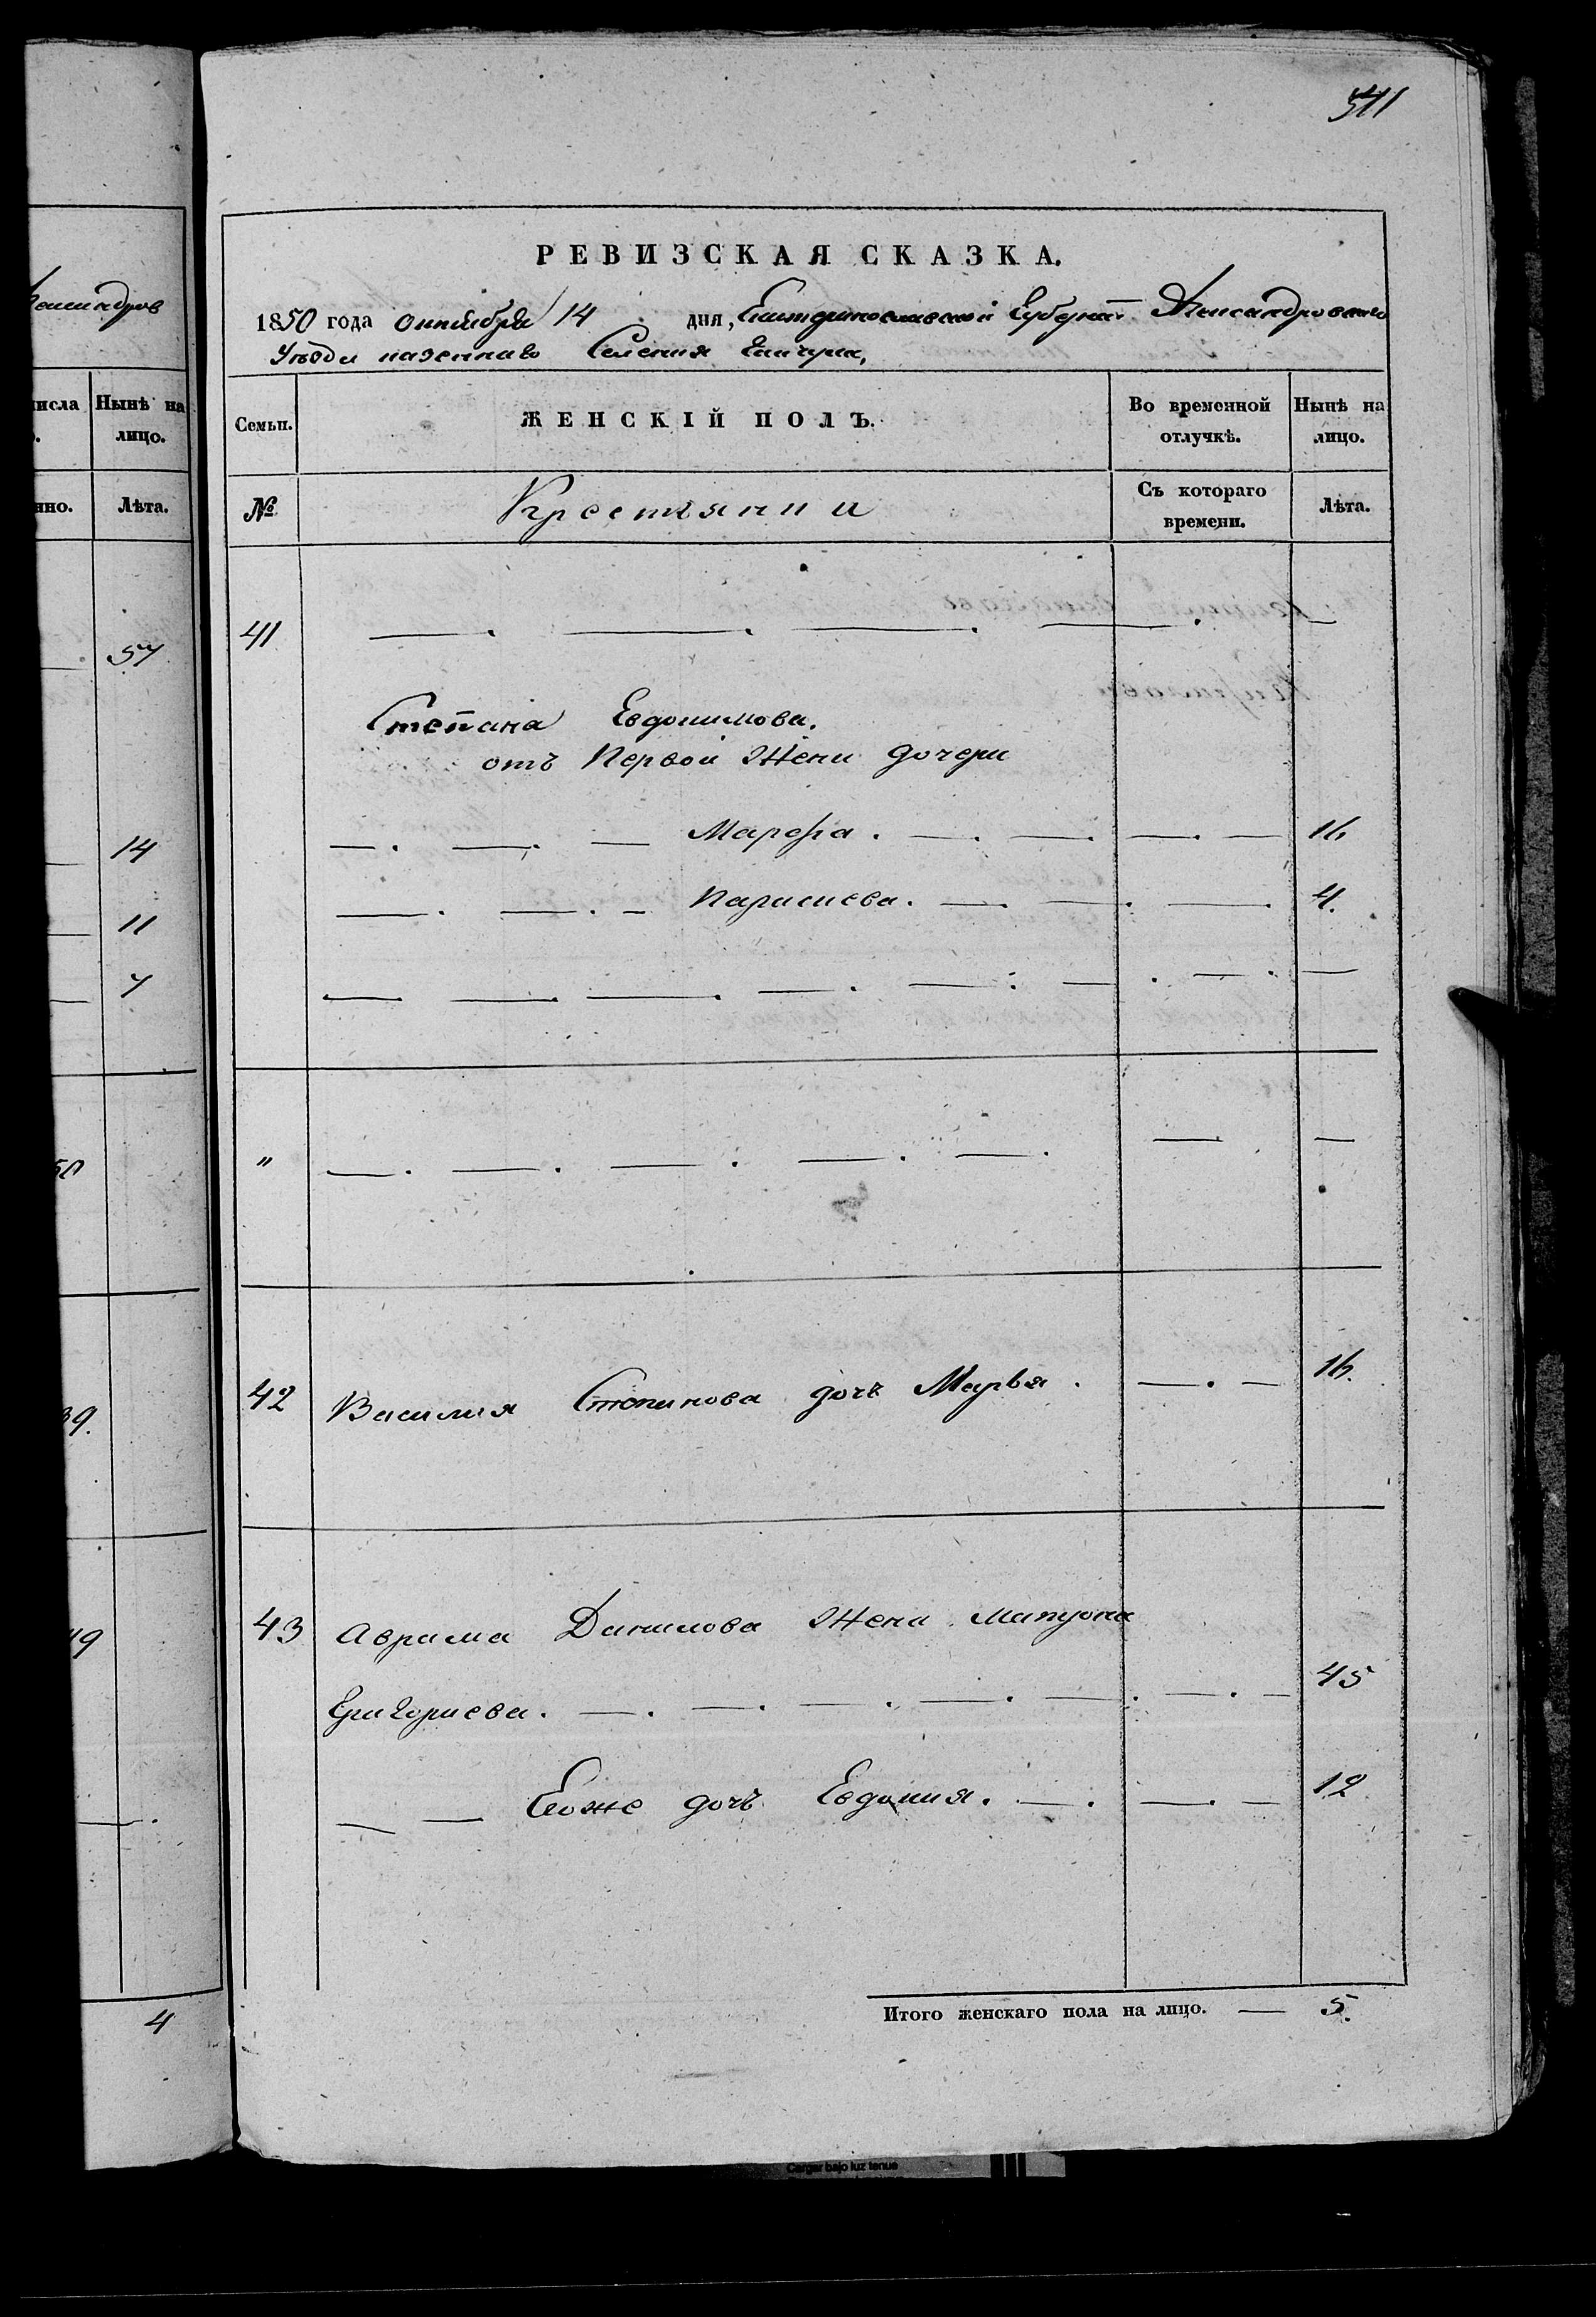 541
РЕВИЗСКАЯ СКАЗКА.
1850 года октября 14 дня, Екатеринославской Губернiи Александровскаго
Уѣзда казеннаго Селения
Семьи.
ЖЕНСКIЙ ПОЛЪ.
Во временной отлучкѣ.
Нынѣ на лицо.
№
Крестьянки
Съ котораго времени.
Лѣта.
41
Степана Евдокимова.
отъ Первой Жени дочери
Марфа. 16
Параскева. 4.
"
42 Василия Степанова дочь Марья. 16.
43 Аврама Данилова Жена Матрона
Григориева. 45
Егоже дочь Евдокия. 12
Итого женскаго пола на лицо. — 5.
числа
Нынѣ на лицо.
Лѣта.
57
14
11
7
50
39.
49
4
Cargar bajo luz tenue